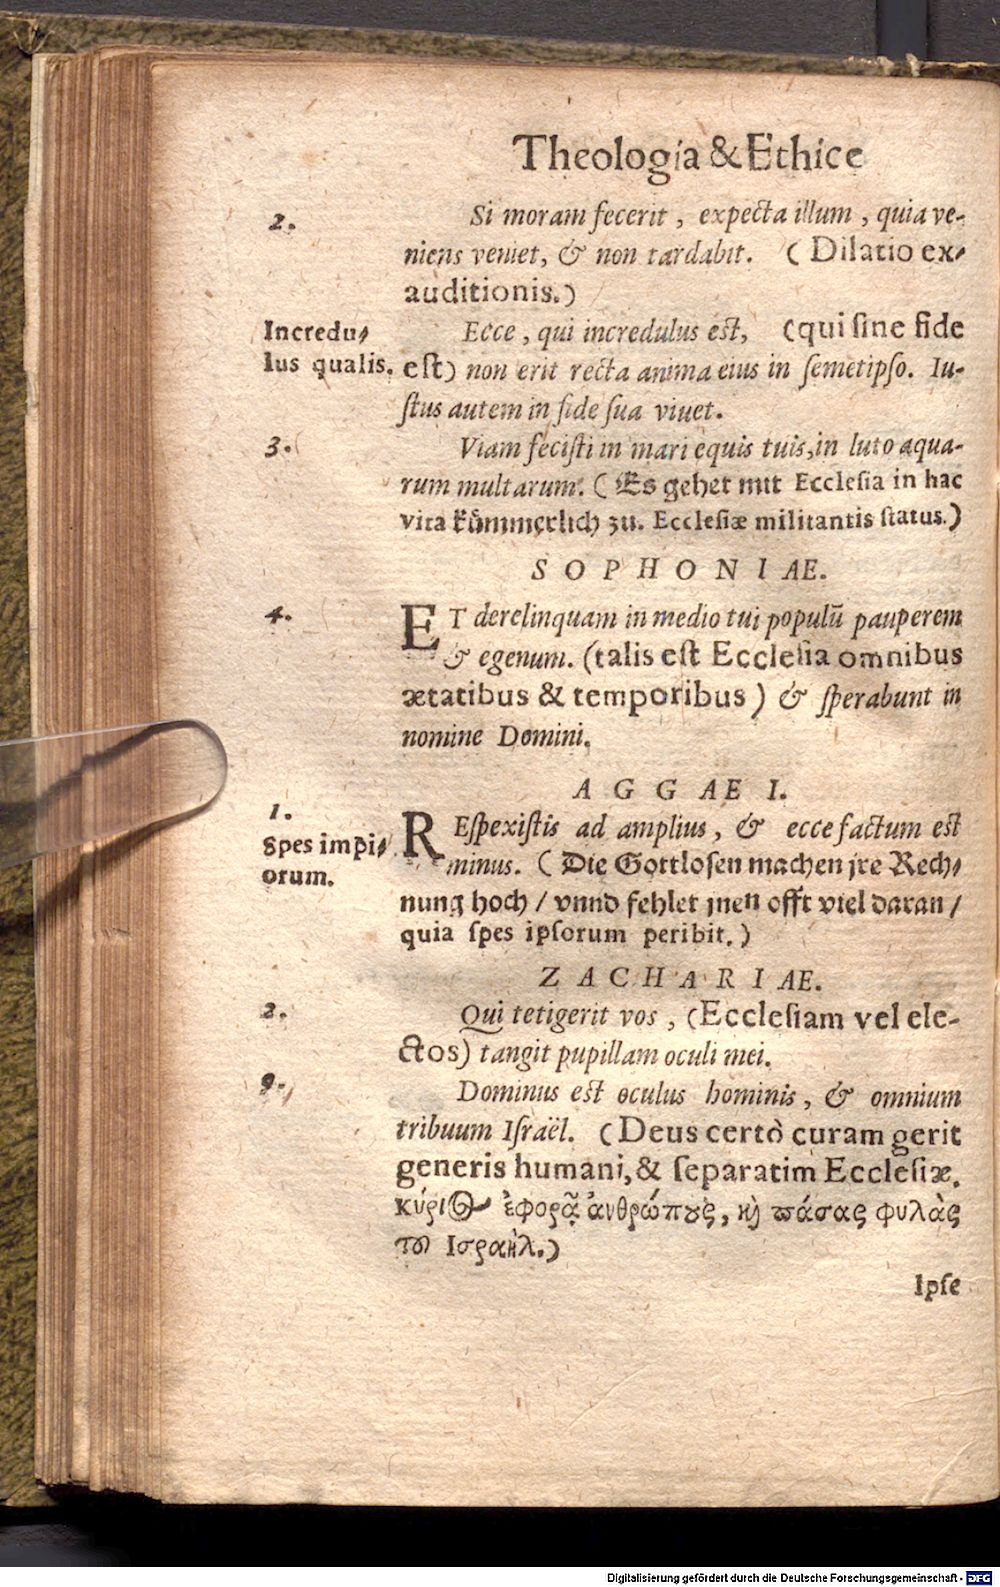 Theologia & Ethice
2.
Si moram fecerit, expecta illum, quia ve-
niens veniet, & non tardabit. (Dilatio ex-
auditionis.)
Incredu-
lus qualis.
Ecce, qui incredulus est, (qui ſine fide
eſt) non erit recta anima eius in ſemetipſo. Iu-
ſtus autem in fide ſua viuet.
3.
Viam feciſti in mari equis tuis, in luto aqua-
rum multarum. (Es gehet mit Eccleſia in hac
vita kümmerlich zu. Eccleſiæ militantis ſtatus.)
SOPHONIAE.
4.
ET derelinquam in medio tui populū pauperem
& egenum. (talis eſt Eccleſia omnibus
ætatibus & temporibus) & ſperabunt in
nomine Domini.
AGGAEI.
1.
Spes impi-
orum.
REſpexiſtis ad amplius, & ecce factum est
minus. (Die Gottloſen machen jre Rech-
nung hoch / vnnd fehlet jnen offt viel daran /
quia ſpes ipſorum peribit.)
ZACHARIAE.
2.
Qui tetigerit vos, (Eccleſiam vel ele-
ctos) tangit pupillam oculi mei.
9.
Dominus est oculus hominis, & omnium
tribuum Iſraël. (Deus certò curam gerit
generis humani, & ſeparatim Eccleſiæ.
κύριος ἐφορᾷ ἀνθρώπους, καὶ πάσας φυλὰς
τοῦ Ισραήλ.)
Ipſe
Digitalisierung gefördert durch die Deutsche Forschungsgemeinschaft - DFG